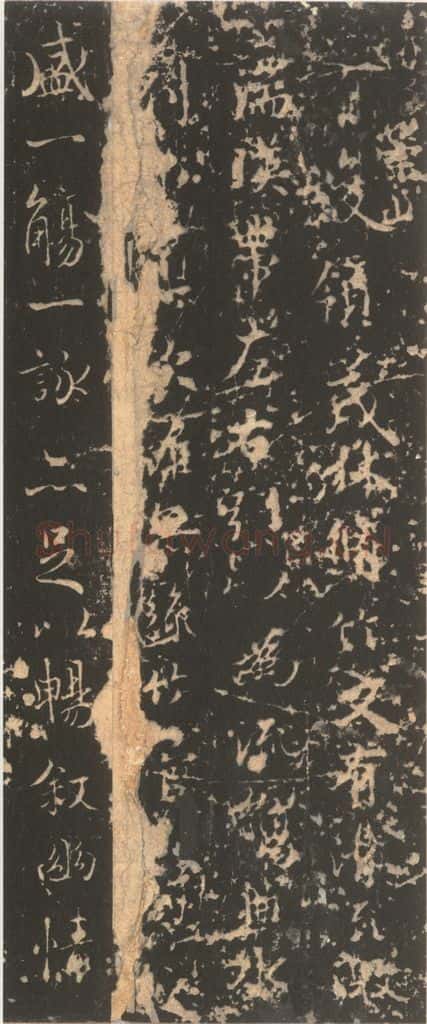 崇山
峻領茂林脩竹又有清流激
湍暎帶左右引以為流觴曲水
列坐其次雖無絲竹管弦之
盛一觴一詠亦足以暢敘幽情